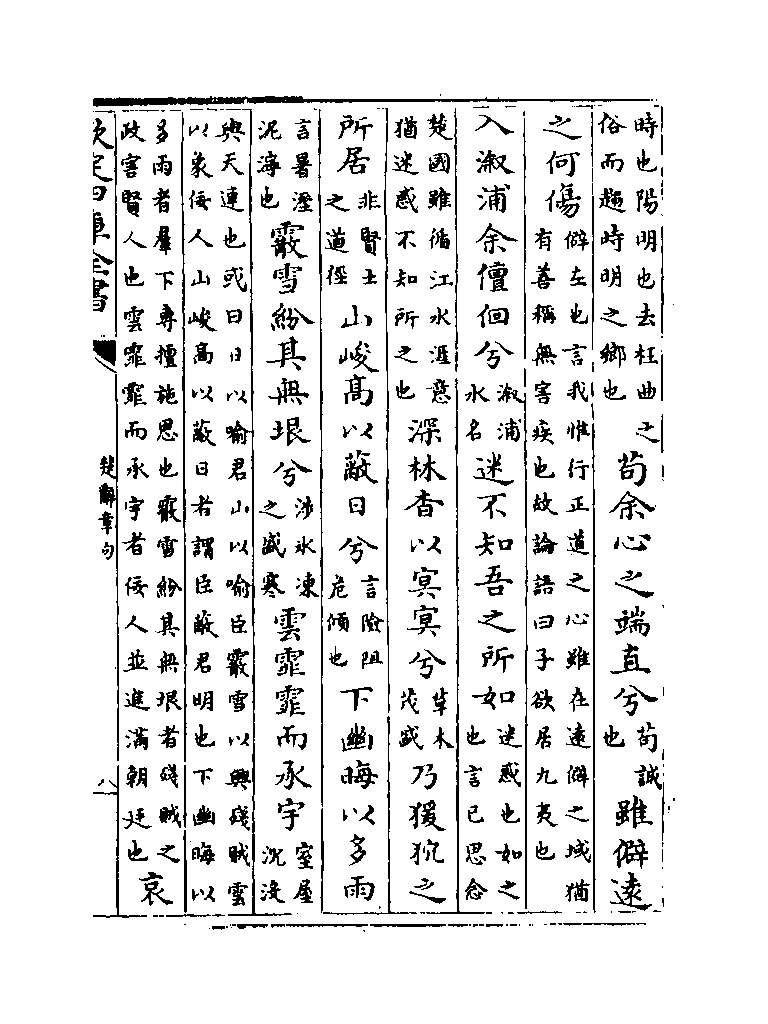 時也陽明也去枉曲之
俗而趨時明之鄉也
苟余心之端直兮
苟誠
也
雖僻遠
之何傷
僻左也言我惟行正道之心雖在遠僻之域猶
有善稱無害疾也故論語曰子欲居九夷也
入溆浦余儃佪兮
溆浦
水名
迷不知吾之所如
迷惑也如之
也言已思念
楚國雖循江水涯意
猶迷惑不知所之也
深林杳以冥冥兮
草木
茂盛
乃猨狖之
所居
非賢士
之道徑
山峻高以蔽日兮
言險阻
危傾也
下幽晦以多雨
言暑溼
泥濘也
霰雪紛其無垠兮
涉氷凍
之盛寒
雲霏霏而承宇
室屋
沉沒
與天連也或曰日以喻君山以喻臣霰雪以興殘賊雲
以象佞人山峻高以蔽日者謂臣蔽君明也下幽晦以
多雨者羣下專擅施恩也霰雪紛其無垠者殘賊之
政害賢人也雲霏霏而承宇者佞人並進滿朝廷也
哀
欽定四庫全書
楚辭章句
八